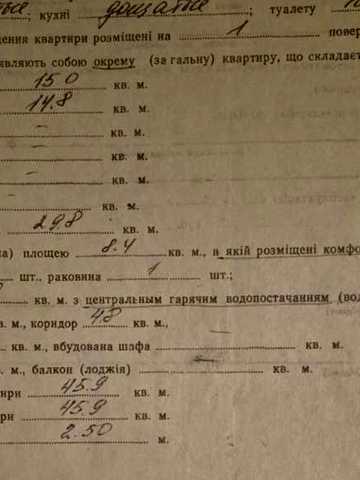 ; кухні дощаті ; туалету
квартири розміщені на 1 повер
являють собою окрему (загальну) квартиру, що складаєт
15.0 кв. м.
14.8 кв. м.
– кв. м.
– кв. м.
– кв. м.
– кв. м.
29.8 кв. м.
площею 8.4 кв. м., в якій розміщені комфо
шт., раковина 1 шт.;
кв. м. з центральным гарячим водопостачанням (во
в. м., коридор 4.8 кв. м., –
кв. м., вбудована шафа кв. м.
в. м., балкон (лоджія) – кв. м.
ири 45.9 кв. м.
ри 45.9 кв. м.
2.50 м.